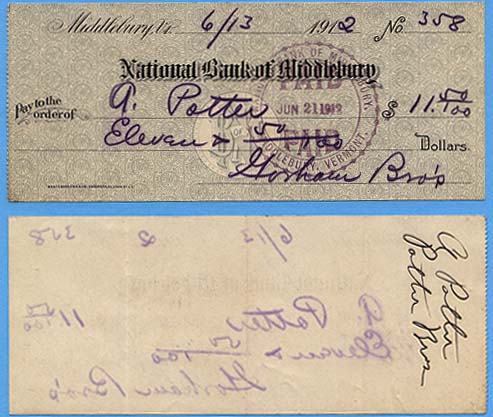 Middlebury, Vt. 6/13 1912 No. 358
National Bank of Middlebury
PAID
JUN 21 1912
PAID
MIDDLEBURY, VERMONT.
Pay to the order of A. Potter $ 11.50/100
Eleven & 50/100 Dollars.
Gorham Bro's
A Potter
Potter Bros